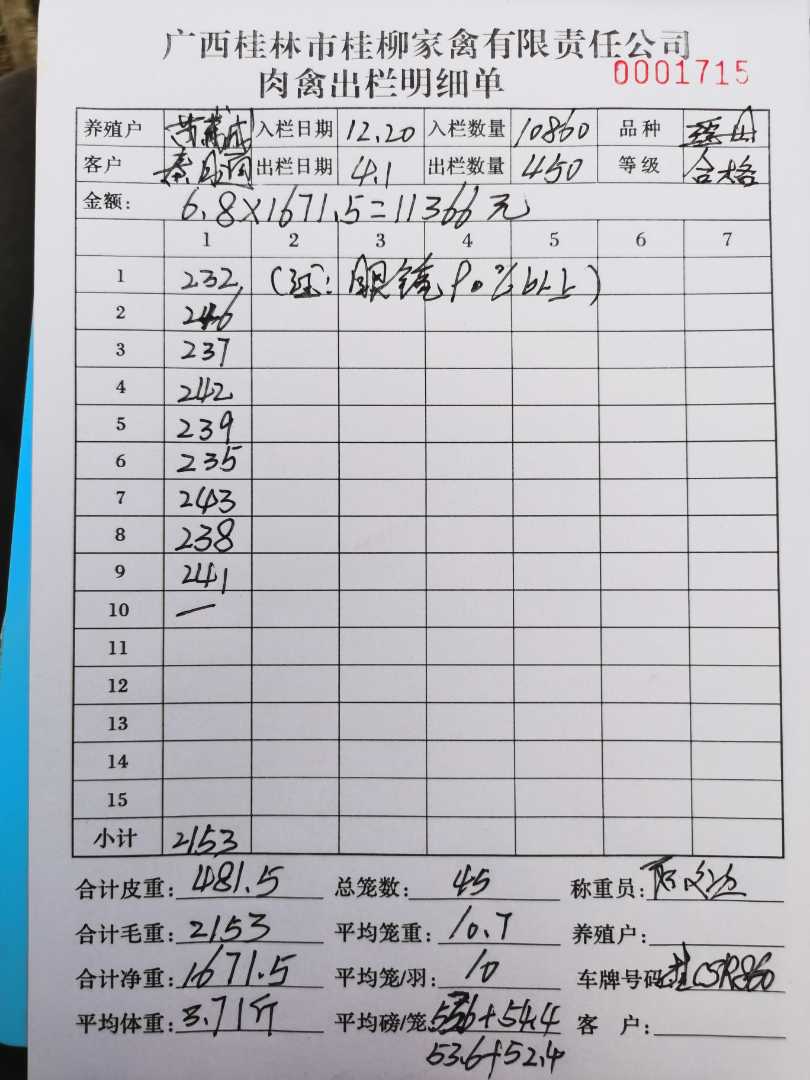 广西桂林市桂柳家禽有限责任公司
肉禽出栏明细单 0001715
养殖户 入栏日期 12.20 入栏数量 10860 品种
客户 出栏日期 4.1 出栏数量 450 等级 合格
金额: 6.8×1671.5=11366元
1 2 3 4 5 6 7
1 232 (注: 眼镜90%以上)
2 246
3 237
4 242
5 239
6 235
7 243
8 238
9 241
10 —
11
12
13
14
15
小计 2153
合计皮重: 481.5 总笼数: 45 称重员:
合计毛重: 2153 平均笼重: 10.7 养殖户:
合计净重: 1671.5 平均笼/羽: 10 车牌号码:
平均体重: 3.71斤 平均磅/笼: +54.4 客 户:
53.6+52.4